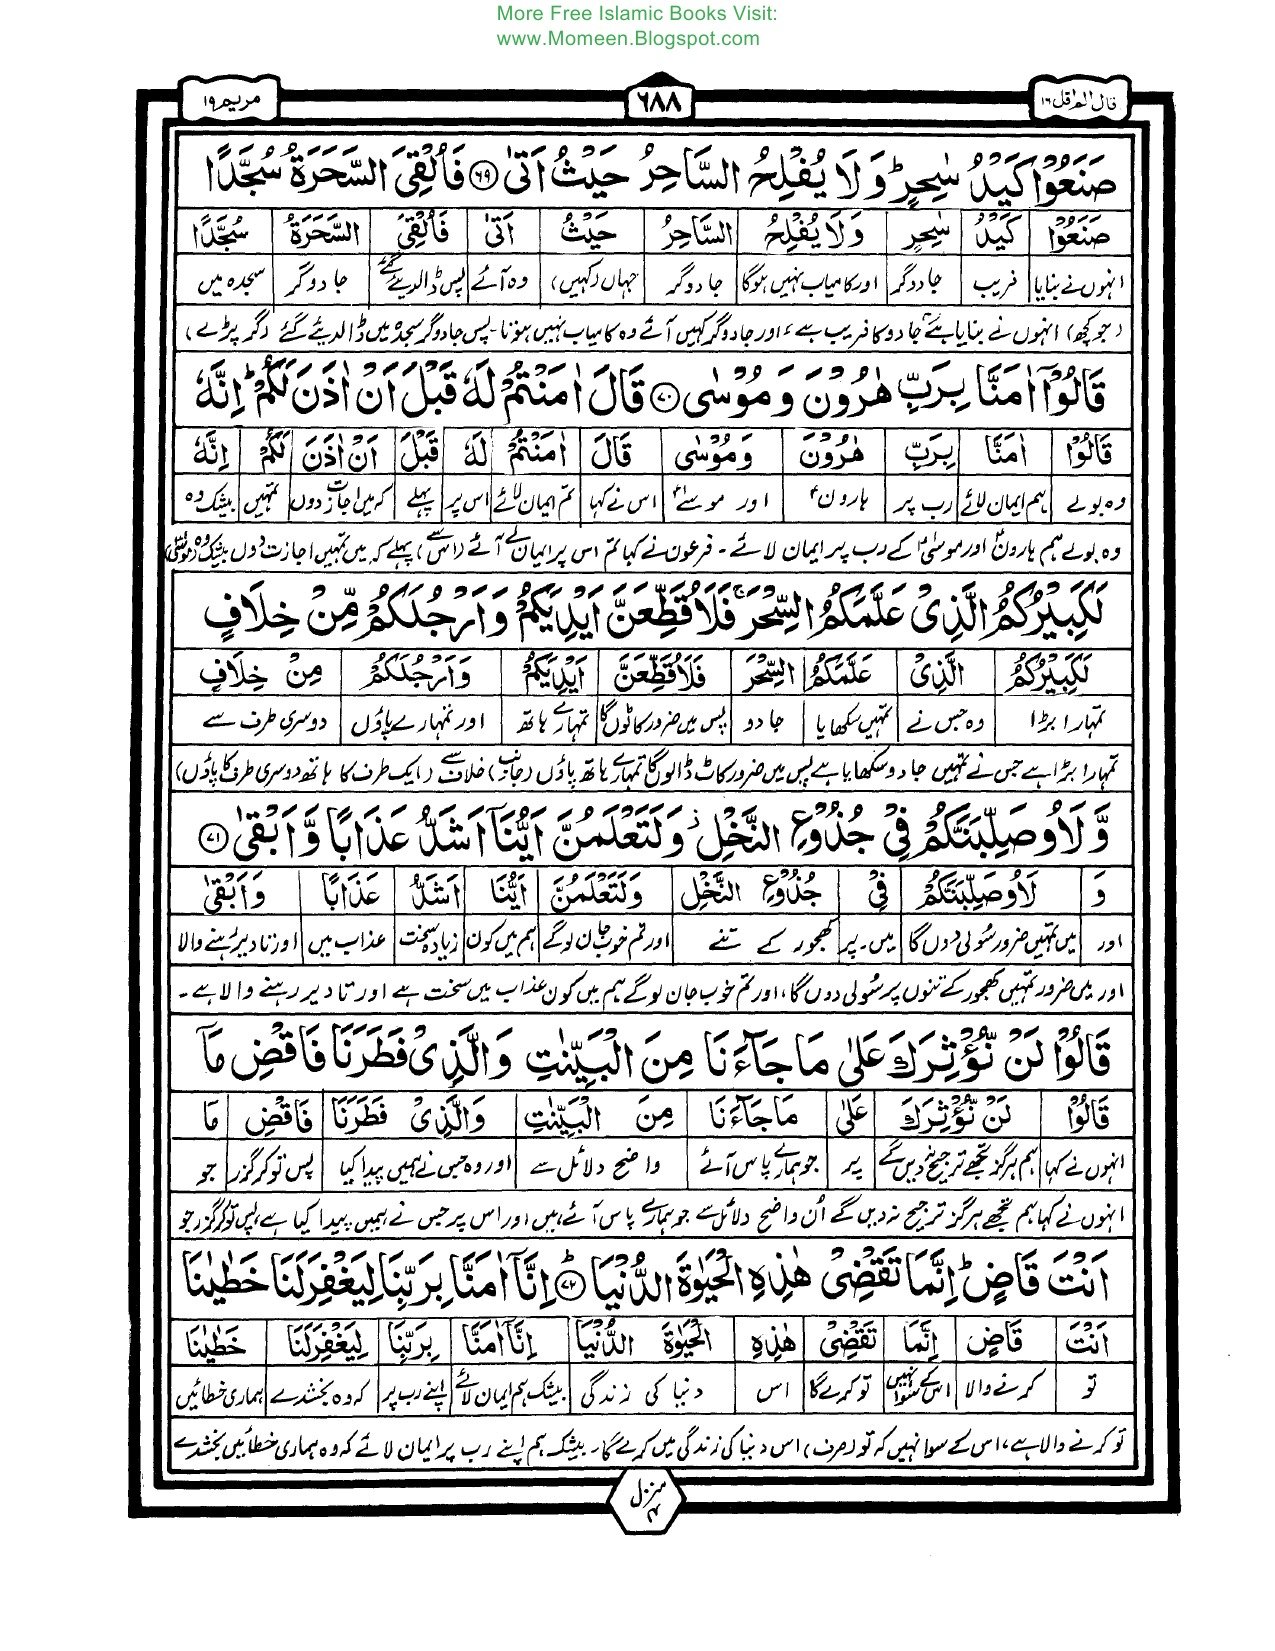 More Free Islamic Books Visit:
www.Momeen.Blogspot.com
قال الم اقل ١٦
٦٨٨
مريم ١٩
صَنَعُوۡا كَيۡدُ سٰحِرٍ ؕ وَلَا يُفۡلِحُ السَّاحِرُ حَيۡثُ اَتٰى ۶۹ فَاُلۡقِىَ السَّحَرَةُ سُجَّدًا
صَنَعُوۡا كَيۡدُ سٰحِرٍ وَلَا يُفۡلِحُ السَّاحِرُ حَيۡثُ اَتٰى فَاُلۡقِىَ السَّحَرَةُ سُجَّدًا
انہوں نے بنایا فریب جادوگر اور کامیاب نہیں ہوگا جادوگر جہاں (کہیں) وہ آئے پس ڈالدیئے گئے جادوگر سجدہ میں
(جو کچھ) انہوں نے بنایا ہے جادو کا فریب ہے، اور جادوگر کہیں آئے وہ کامیاب نہیں ہوتا۔ پس جادوگر سجدہ میں ڈالدیئے گئے (گر پڑے)
قَالُوۡۤا اٰمَنَّا بِرَبِّ هٰرُوۡنَ وَ مُوۡسٰى ۷۰ قَالَ اٰمَنۡتُمۡ لَهٗ قَبۡلَ اَنۡ اٰذَنَ لَكُمۡ ؕ اِنَّهٗ
قَالُوۡۤا اٰمَنَّا بِرَبِّ هٰرُوۡنَ وَمُوۡسٰى قَالَ اٰمَنۡتُمۡ لَهٗ قَبۡلَ اَنۡ اٰذَنَ لَكُمۡ اِنَّهٗ
وہ بولے ہم ایمان لائے رب پر ہارونؑ اور موسےٰؑ اس نے کہا تم ایمان لائے اس پر پہلے کہ میں اجازت دوں تمہیں بیشک وہ
وہ بولے ہم ہارونؑ اور موسیٰؑ کے رب پر ایمان لائے۔ فرعون نے کہا تم اس پر ایمان لے آئے (اس سے) پہلے کہ میں تمہیں اجازت دوں بیشک وہ (موسیٰ)
لَكَبِيۡرُكُمُ الَّذِىۡ عَلَّمَكُمُ السِّحۡرَ ۚ فَلَاُقَطِّعَنَّ اَيۡدِيَكُمۡ وَاَرۡجُلَكُمۡ مِّنۡ خِلَافٍ
لَكَبِيۡرُكُمُ الَّذِىۡ عَلَّمَكُمُ السِّحۡرَ فَلَاُقَطِّعَنَّ اَيۡدِيَكُمۡ وَاَرۡجُلَكُمۡ مِنۡ خِلَافٍ
تمہارا بڑا وہ جس نے تمہیں سکھایا جادو پس میں ضرور کاٹوں گا تمہارے ہاتھ اور تمہارے پاؤں دوسری طرف سے
تمہارا بڑا ہے جس نے تمہیں جادو سکھایا ہے پس میں ضرور کاٹ ڈالوں گا تمہارے ہاتھ پاؤں (جانب) خلاف سے (ایک طرف کا ہاتھ دوسری طرف کا پاؤں)
وَّلَاُوصَلِّبَنَّكُمۡ فِىۡ جُذُوۡعِ النَّخۡلِ وَلَتَعۡلَمُنَّ اَيُّنَاۤ اَشَدُّ عَذَابًا وَّاَبۡقٰى ۷۱
وَ لَاُوصَلِّبَنَّكُمۡ فِىۡ جُذُوۡعِ النَّخۡلِ وَلَتَعۡلَمُنَّ اَيُّنَا اَشَدُّ عَذَابًا وَاَبۡقٰى
اور میں تمہیں ضرور سُولی دوں گا میں۔ پر کھجور کے تنے اور تم خوب جان لوگے ہم میں کون زیادہ سخت عذاب میں اور تا دیر رہنے والا
اور میں ضرور تمہیں کھجور کے تنوں پر سُولی دوں گا، اور تم خوب جان لوگے ہم میں کون عذاب میں سخت ہے اور تا دیر رہنے والا ہے۔
قَالُوۡا لَنۡ نُّؤۡثِرَكَ عَلٰى مَا جَآءَنَا مِنَ الۡبَيِّنٰتِ وَالَّذِىۡ فَطَرَنَا فَاقۡضِ مَاۤ
قَالُوۡا لَنۡ نُّؤۡثِرَكَ عَلٰى مَاجَآءَنَا مِنَ الۡبَيِّنٰتِ وَالَّذِىۡ فَطَرَنَا فَاقۡضِ مَا
انہوں نے کہا ہم ہرگز تجھے ترجیح نہ دیں گے پر جو ہمارے پاس آئے واضح دلائل سے اور وہ جس نے ہمیں پیدا کیا پس تو کر گزر جو
انہوں نے کہا ہم تجھے ہرگز ترجیح نہ دیں گے اُن واضح دلائل سے جو ہمارے پاس آئے ہیں اور اس پر جس نے ہمیں پیدا کیا ہے پس تو کر گزر جو
اَنۡتَ قَاضٍ ؕ اِنَّمَا تَقۡضِىۡ هٰذِهِ الۡحَيٰوةَ الدُّنۡيَا ؕ ۷۲ اِنَّاۤ اٰمَنَّا بِرَبِّنَا لِيَغۡفِرَ لَنَا خَطٰيٰنَا
اَنۡتَ قَاضٍ اِنَّمَا تَقۡضِىۡ هٰذِهِ الۡحَيٰوةَ الدُّنۡيَا اِنَّاۤ اٰمَنَّا بِرَبِّنَا لِيَغۡفِرَ لَنَا خَطٰيٰنَا
تو کرنے والا اس کے سوا نہیں تو کرے گا اس دنیا کی زندگی بیشک ہم ایمان لائے اپنے رب پر کہ وہ بخشدے ہماری خطائیں
تو کرنے والا ہے، اس کے سوا نہیں کہ تو (صرف) اس دنیا کی زندگی میں کرے گا۔ بیشک ہم اپنے رب پر ایمان لائے کہ وہ ہماری خطائیں بخشدے
منزل ۴